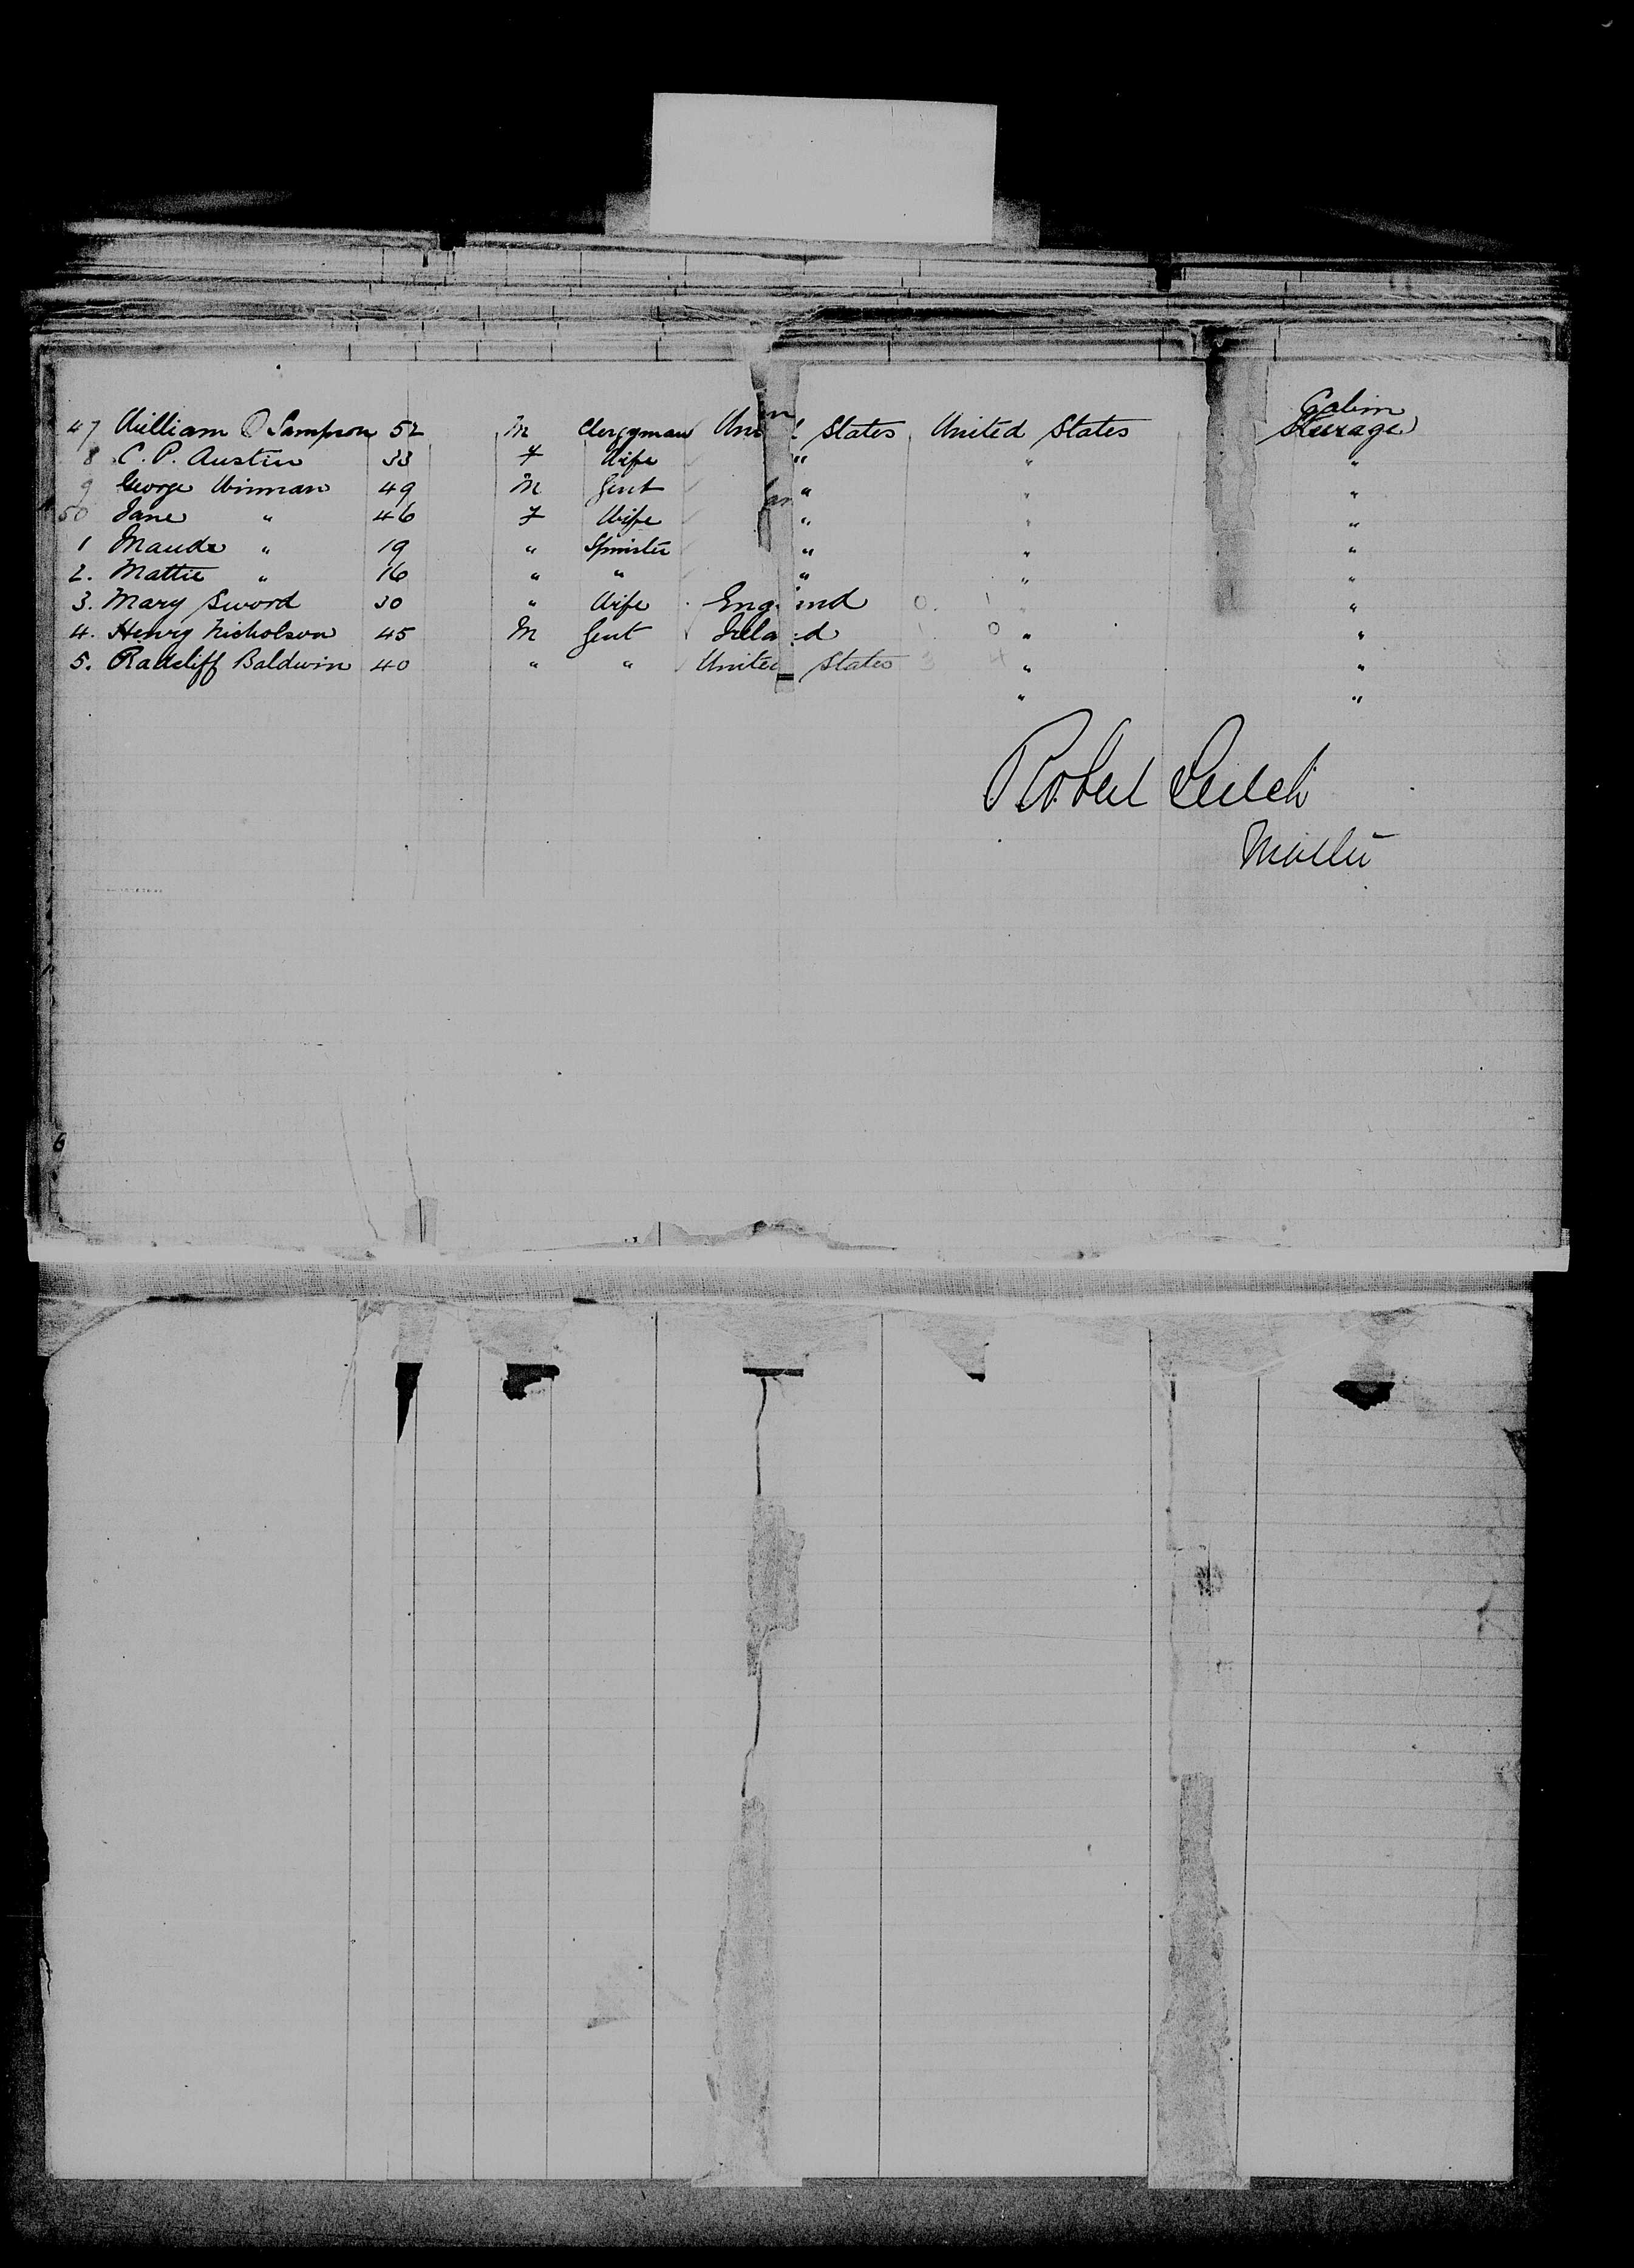 Cabin
47 William D Sampson 52 M Clergyman United States United States Steerage
8 C. P. Austin 33 F Wife " " "
9 George Winman 49 M Gent " " "
50 Jane " 46 F Wife " " "
1 Maude " 19 " Spinster " " "
2. Mattie " 16 " " " " "
3. Mary Sword 30 " Wife England 0. 1 " "
4. Henry Nicholson 45 M Gent Ireland 1 0 " "
5. Radcliff Baldwin 40 " " United States 3 4 " "
" "
Robert Leitch
Master
6